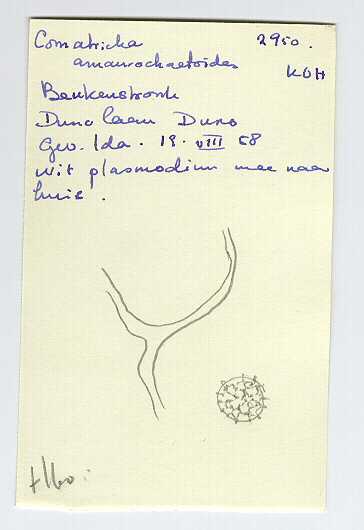 Comatricha 2950.
amaurochaetoides KOH
Beukenstronk
Duno laan Duno
Gev. Ida. 19. VIII 68
wit plasmodium mee naar
huis.